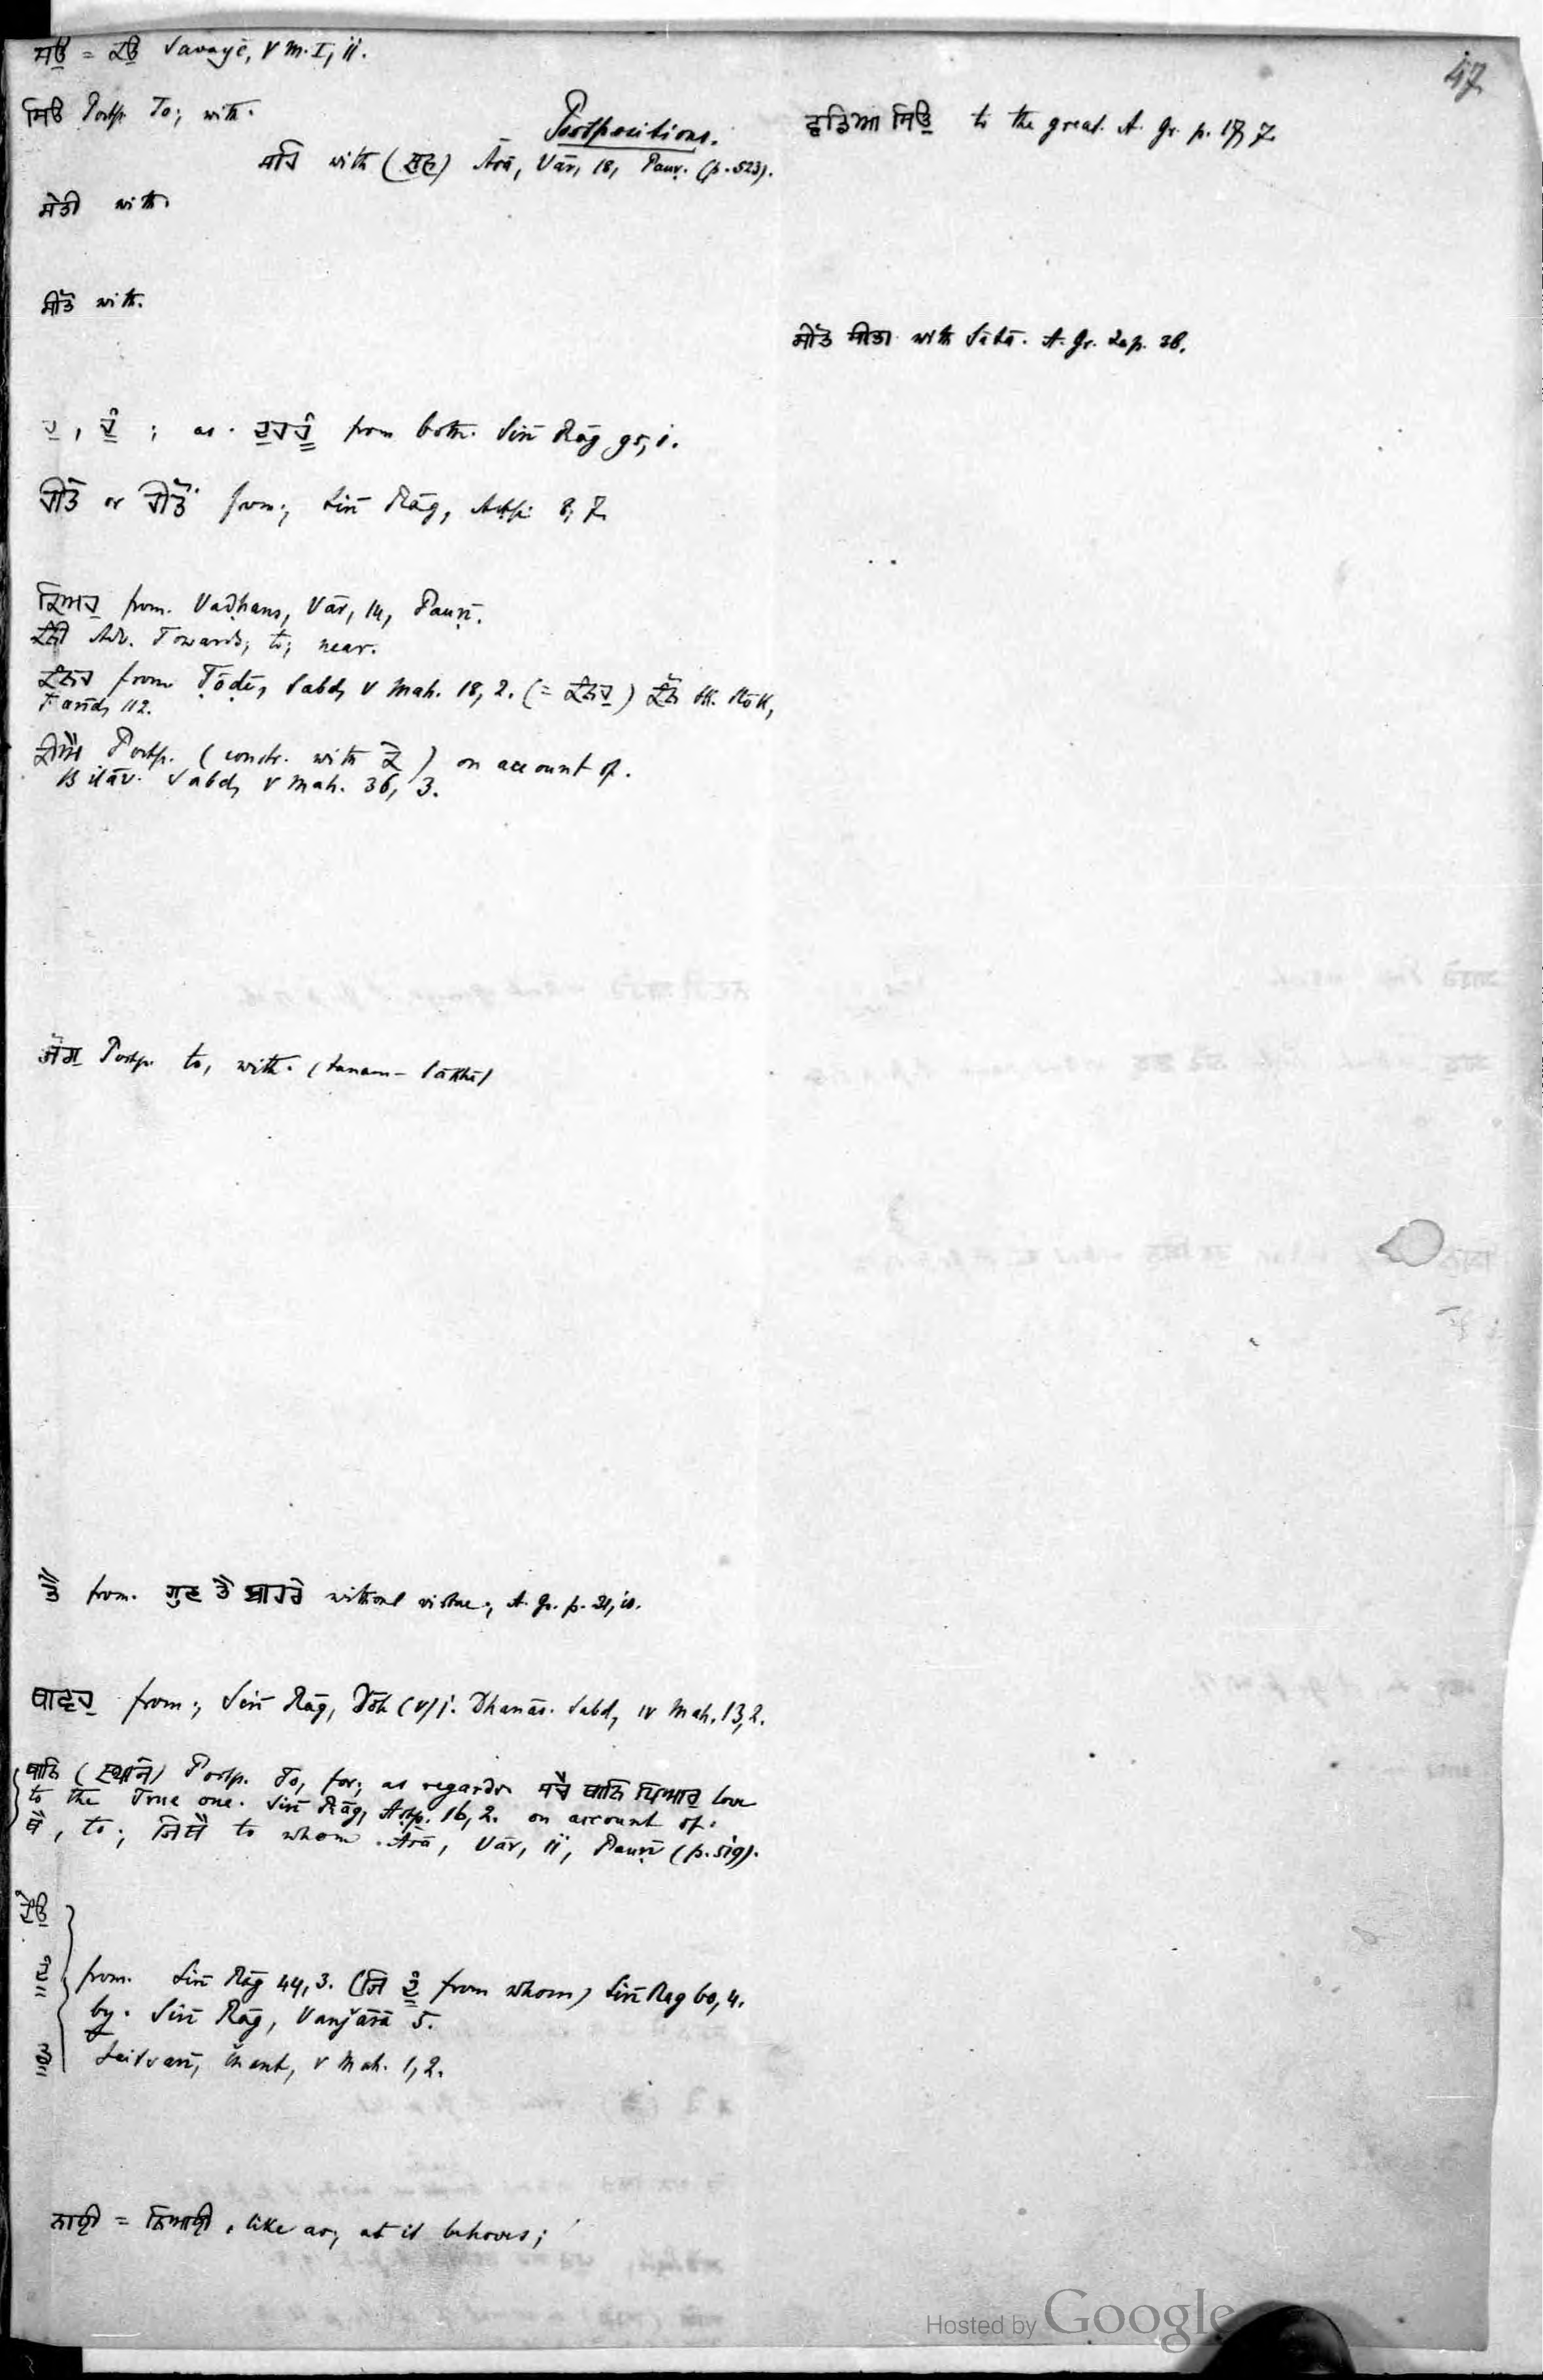 ਸਉ = ਕਉ Savayē, V M. I, ii.
47
ਸਿਉ Postp. To; with.
Postpositions.
ਵਡਿਆ ਸਿਉ to the great. A. Gr. p. 17, 7.
ਸਹਿ with ( ) Āsā, Vār, 18, Pauṛ. (p. 523).
ਸੇਤੀ with.
ਸੀਤੇ with.
with Sītā. A. Gr. p. 38.
; as. from both. Sirī Rāg 95, 1.
or from; Sirī Rāg, Aṣṭp. 8, 7.
ਕਿਅਹੁ from. Vaḍhans, Vār, 14, Pauṛī.
ਕੰਨੀ Adv. Towards; to; near.
ਕੰਨਹ from Ṭōḍī, Sabd, V Mah. 18, 2. (= ਕੰਨਹੁ) ਕੰਨੈ Slōk,
Farīd, 112.
ਕੀਐ Postp. (constr. with ਕੇ) on account of.
Bilāv. Sabd, V Mah. 36, 3.
ਜੋਗੁ Postp. to, with. (Janam-Sākhī)
ਤੈ from. ਗੁਣ ਤੇ ਬਾਹਰੇ without virtue; A. Gr. p. 21, 10.
ਥਾਵਹੁ from; Sirī Rāg, (V) 1. Dhanās. Sabd, IV Mah. 13, 2.
ਥਾਨਿ (स्थाने) Postp. To, for; as regards ਸਚੈ ਥਾਨਿ ਪਿਆਰੁ love
to the True one. Sirī Rāg, Aṣṭp. 16, 2. on account of.
ਥੈ, to; ਜਿਥੈ to whom. Āsā, Vār, ii, Pauṛī (p. 519).
from. Sirī Rāg 44, 3. (ਜਿ ਦੂੰ from whom) Sirī Rāg 60, 4.
by. Sirī Rāg, Vanjārā 5.
Jaitsarī, V Mah. 1, 2.
ਨਾਈ = ਨਿਆਈ. like as; as it behoves;
Hosted by Google